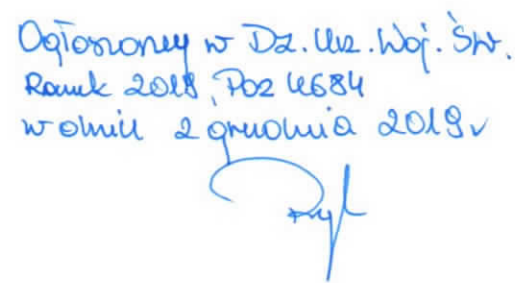 Ogłoszony w Dz. Urz. Woj. Św.
Roczek 2019, Poz 4684
w dniu 2 grudnia 2019 r